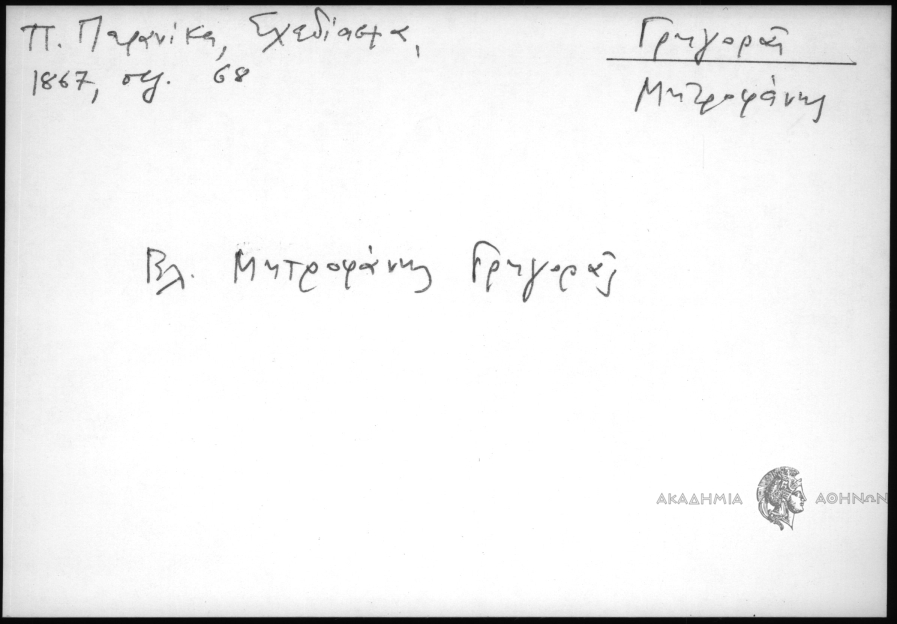 Π. Παρανίκα, Σχεδίασμα,
1867, σελ. 68
Γρηγορᾶς
Μητροφάνης
Βλ. Μητροφάνης Γρηγορᾶς
ΑΚΑΔΗΜΙΑ ΑΘΗΝΩΝ